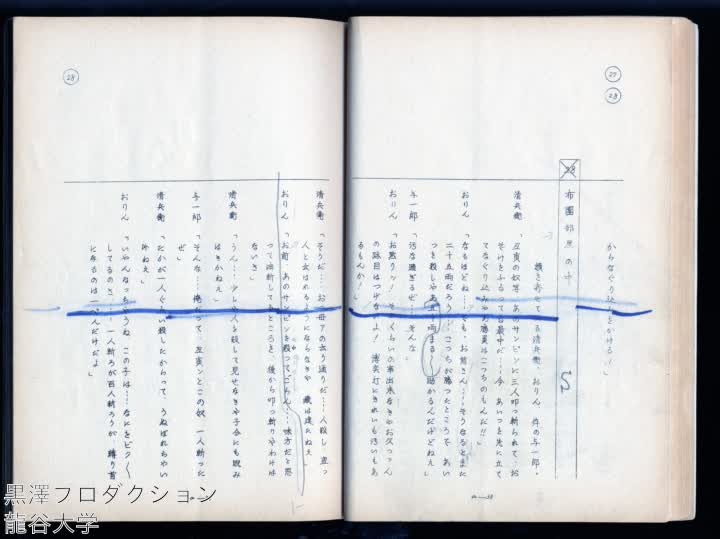 27
28
からなぐり込みをかける!」
28 布團部屋の中
額を寄せてゐる清兵衛、おりん、伜の与一郎。
清兵衛「丑寅の奴等、あのサンピンに三人叩っ斬られて、お
そけをふるってる最中だ……今、あいつを先に立て
てなぐり込みや、勝負はこっちのもんだ!!」
おりん「なるほどね……でも、お前さん……そうなるとまた
二十五両だろう……こっちが勝ったところで、あい
つを殺しやあ五十両まる〱助かるんだけどねえ」
与一郎「汚な過ぎるぜ、そんな」
おりん「お黙りッ! そのくらいの事出来なきやお父っつん
の跡目はつげないよ! 清兵衛にきれいも汚いもあ
るもんか!」
28
清兵衛「そうだ……お母アの云う通りだ……人殺し、盗っ
人と云はれるようにならなきや、貫禄は達たねえ」
おりん「お前、あのサンピンを殺ってごらん……味方だと思
って油断してるところを、後から叩っ斬りやわけは
ないさ」
清兵衛「うん……少しや人を殺して見せなきや子分にも睨み
はきかねえ」
与一郎「そんな……俺だって、丑寅ンとこの奴、一人斬った
ぜ」
清兵衛「たかが一人ぐらい殺したからって、うぬぼれちやい
けねえ」
おりん「いやんなっちまうね、この子は……なにをビク〱
してるのさ……一人斬ろが百人斬ろうが、縛り首
になるのは一ぺんだけだよ」
黒澤プロダクション
龍谷大学